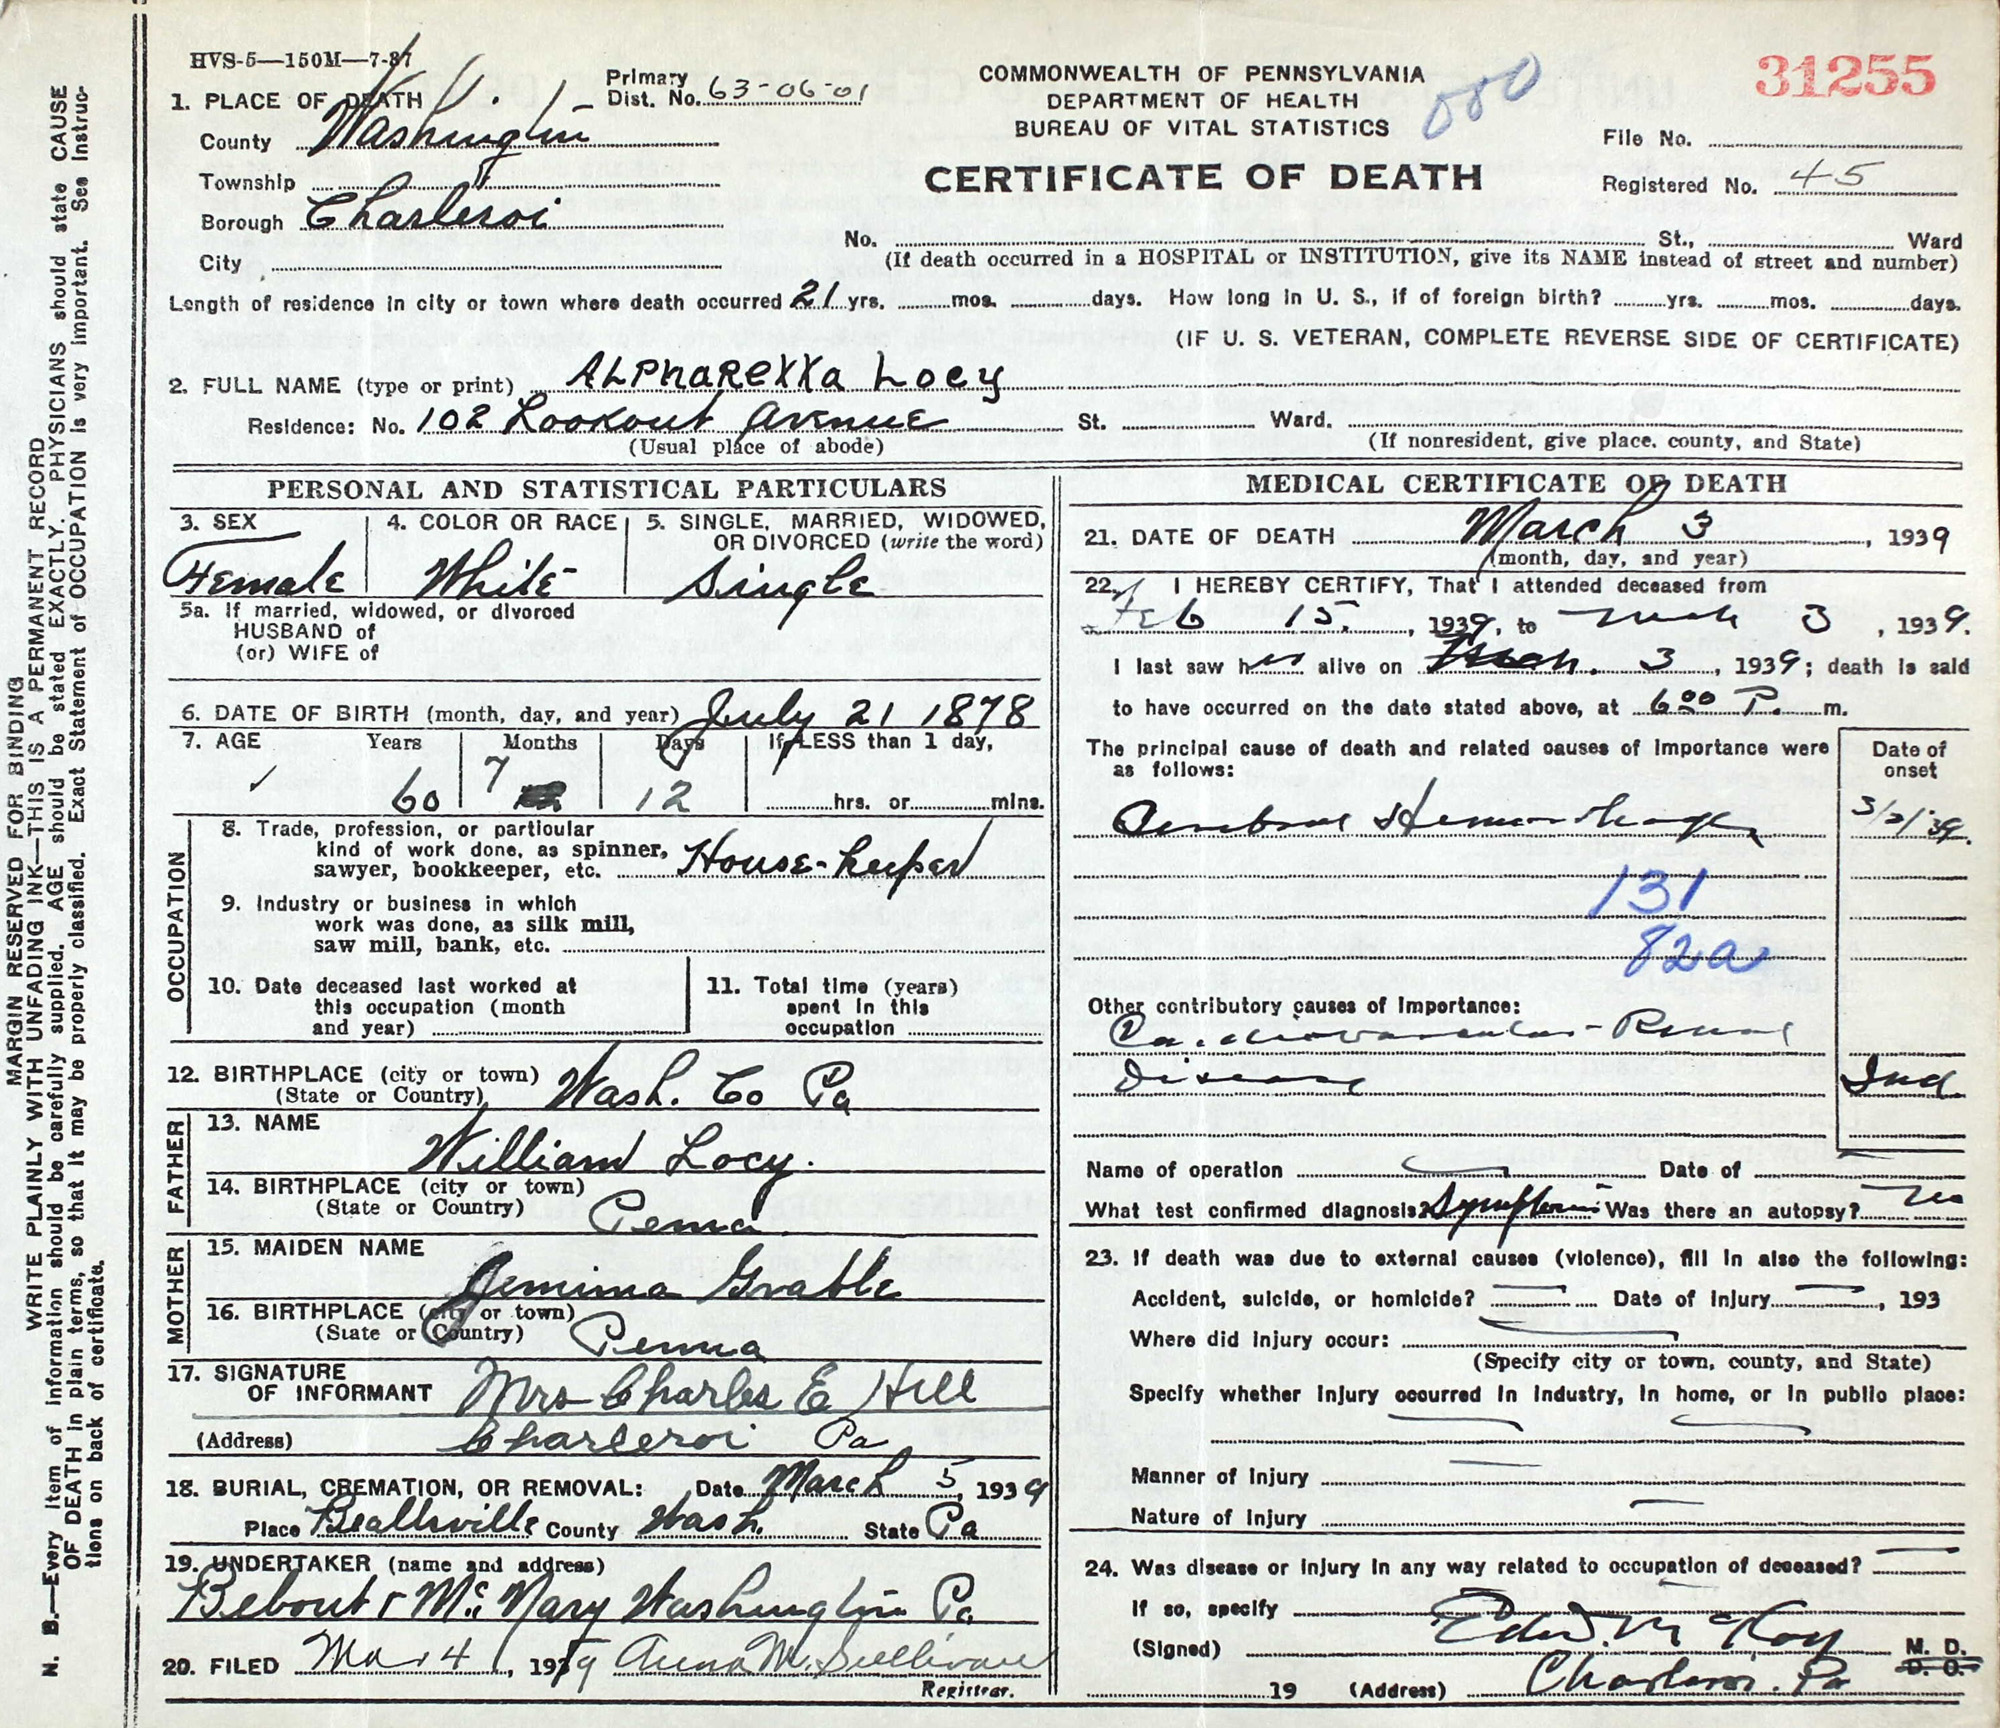 HVS-5—150M—7-37
Primary
Dist. No. 63-06-01
COMMONWEALTH OF PENNSYLVANIA
DEPARTMENT OF HEALTH
BUREAU OF VITAL STATISTICS
31255
1. PLACE OF DEATH
County Washington
Township
Borough Charleroi
City
CERTIFICATE OF DEATH
File No.
Registered No. 45
No. St., Ward
(If death occurred in a HOSPITAL or INSTITUTION, give its NAME instead of street and number)
Length of residence in city or town where death occurred 21 yrs. mos. days. How long in U. S., if of foreign birth? yrs. mos. days.
(IF U. S. VETERAN, COMPLETE REVERSE SIDE OF CERTIFICATE)
2. FULL NAME (type or print) ALPHAREXXA Locy
Residence: No. 102 Lookout Avenue St. Ward.
(Usual place of abode) (If nonresident, give place, county, and State)
PERSONAL AND STATISTICAL PARTICULARS
3. SEX
Female
4. COLOR OR RACE
White
5. SINGLE, MARRIED, WIDOWED,
OR DIVORCED (write the word)
Single
5a. If married, widowed, or divorced
HUSBAND of
(or) WIFE of
6. DATE OF BIRTH (month, day, and year) July 21 1878
7. AGE Years Months Days If LESS than 1 day,
60 7 12 hrs. or mins.
OCCUPATION
8. Trade, profession, or particular
kind of work done, as spinner,
sawyer, bookkeeper, etc. House-keeper
9. Industry or business in which
work was done, as silk mill,
saw mill, bank, etc.
10. Date deceased last worked at
this occupation (month
and year)
11. Total time (years)
spent in this
occupation
12. BIRTHPLACE (city or town)
(State or Country) Wash. Co Pa
FATHER
13. NAME
William Locy.
14. BIRTHPLACE (city or town)
(State or Country) Penna
MOTHER
15. MAIDEN NAME
Jemima Grable
16. BIRTHPLACE (city or town)
(State or Country) Penna
17. SIGNATURE
OF INFORMANT Mrs Charles E Hill
(Address) Charleroi Pa
18. BURIAL, CREMATION, OR REMOVAL: Date March 5, 1939
Place Beallsville County Wash. State Pa
19. UNDERTAKER (name and address)
Bebout & McNary Washington Pa
20. FILED Mar 4, 1939 Anna M. Sullivan
Registrar.
MEDICAL CERTIFICATE OF DEATH
21. DATE OF DEATH March 3, 1939
(month, day, and year)
22. I HEREBY CERTIFY, That I attended deceased from
Feb 15, 1939, to Mch 3, 1939.
I last saw her alive on Mch. 3, 1939; death is said
to have occurred on the date stated above, at 6 00 P. m.
The principal cause of death and related causes of importance were
as follows:
Date of
onset
Cerebral Hemorrhage 3/2/39.
131
82a
Other contributory causes of importance:
Cardiovascular-Renal
Disease Ind
Name of operation Date of
What test confirmed diagnosis? Symptoms Was there an autopsy? no
23. If death was due to external causes (violence), fill in also the following:
Accident, suicide, or homicide? Date of injury , 193
Where did injury occur:
(Specify city or town, county, and State)
Specify whether injury occurred in industry, in home, or in public place:
Manner of injury
Nature of injury
24. Was disease or injury in any way related to occupation of deceased?
If so, specify
(Signed) Edw. McKay M. D.
D. O.
19 (Address) Charleroi. Pa
MARGIN RESERVED FOR BINDING
WRITE PLAINLY WITH UNFADING INK—THIS IS A PERMANENT RECORD
N. B.—Every item of information should be carefully supplied. AGE should be stated EXACTLY. PHYSICIANS should state CAUSE
OF DEATH in plain terms, so that it may be properly classified. Exact Statement of OCCUPATION is very important. See instruc-
tions on back of certificate.